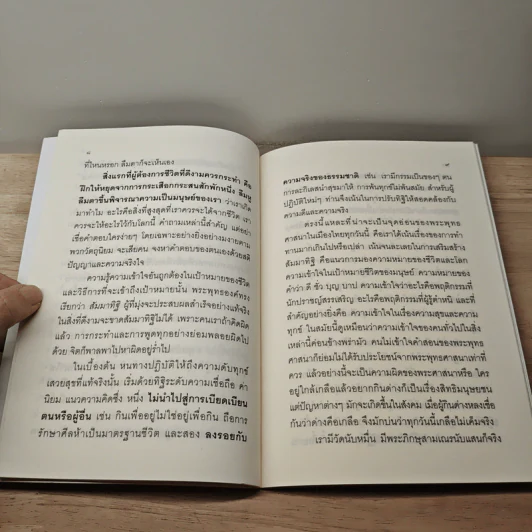 ๘
ที่ไหนหรอก ลืมตาก็จะเห็นเอง
สิ่งแรกที่ผู้ต้องการชีวิตที่ดีงามควรกระทำ คือ
ฝึกให้หยุดจากการกระเสือกกระสนสักพักหนึ่ง ลืมหู
ลืมตาขึ้นพิจารณาความเป็นมนุษย์ของเรา ว่าเราเกิด
มาทำไม อะไรคือสิ่งที่สูงสุดที่เราควรจะได้จากชีวิต เรา
ควรจะให้อะไรไว้กับโลกนี้ คำถามเหล่านี้สำคัญ แต่อย่า
เชื่อคำตอบใครง่ายๆ โดยเฉพาะอย่างยิ่งอย่างมงายตาม
พวกวัตถุนิยม จะเสียคน จงหาคำตอบของตนเองด้วยสติ
ปัญญาและความจริงใจ
ความรู้ความเข้าใจอันถูกต้องในเป้าหมายของชีวิต
และวิธีการที่จะเข้าถึงเป้าหมายนั้น พระพุทธองค์ทรง
เรียกว่า สัมมาทิฐิ ผู้ที่มุ่งจะประสบผลสำเร็จอย่างแท้จริง
ในสิ่งที่ดีงามจะขาดสัมมาทิฐิไม่ได้ เพราะคนเราถ้าคิดผิด
แล้ว การกระทำและการพูดทุกอย่างย่อมพลอยผิดไป
ด้วย จิตก็พาลพาไปหาผิดอยู่ร่ำไป
ในเบื้องต้น หนทางปฏิบัติให้ถึงความดับทุกข์
เสวยสุขที่แท้จริงนั้น เริ่มด้วยทิฐิระดับความเชื่อถือ ค่า
นิยม แนวความคิดซึ่ง หนึ่ง ไม่นำไปสู่การเบียดเบียน
ตนหรือผู้อื่น เช่น กินเพื่ออยู่ไม่ใช่อยู่เพื่อกิน ถือการ
รักษาศีลห้าเป็นมาตรฐานชีวิต และสอง ลงรอยกับ
๙
ความจริงของธรรมชาติ เช่น เรามีกรรมเป็นของๆ ตน
การละกิเลสนำสุขมาให้ การพ้นทุกข์ไม่พ้นสมัย สำหรับผู้
ปฏิบัติใหม่ๆ ท่านจึงเน้นในการปรับทิฐิให้สอดคล้องกับ
ความดีและความจริง
ตรงนี้แหละที่น่าจะเป็นจุดอ่อนของพระพุทธ
ศาสนาในเมืองไทยทุกวันนี้ คือเราได้เน้นเรื่องของการทำ
ทานมากเกินไปหรือเปล่า เน้นจนละเลยในการเสริมสร้าง
สัมมาทิฐิ คือแนวการมองความหมายของชีวิตและโลก
ความเข้าใจในเป้าหมายชีวิตของมนุษย์ ความหมายของ
คำว่า ดี ชั่ว บุญ บาป เข้าใจว่าอะไรคือพฤติกรรมที่
นักปราชญ์สรรเสริญ อะไรคือพฤติกรรมที่ผู้รู้ตำหนิ และที่
สำคัญอย่างยิ่งคือ ความเข้าใจในเรื่องความสุขและความ
ทุกข์ ในสมัยนี้ดูเหมือนว่าความเข้าใจของคนทั่วไปในสิ่ง
เหล่านี้ค่อนข้างพร่ามัว คนไม่เข้าใจคำสอนของพระพุทธ
ศาสนาก็ย่อมไม่ได้รับประโยชน์จากพระพุทธศาสนาเท่าที่
ควร แล้วอย่างนี้จะเป็นความผิดของพระศาสนาหรือ ใคร
อยู่ใกล้เกลือแล้วอยากกินด่างก็เป็นเรื่องสิทธิมนุษยชน
แต่ปัญหาต่างๆ มักจะเกิดขึ้นในสังคม เมื่อผู้กินด่างหลงเชื่อ
กันว่าด่างคือเกลือ จึงมักบ่นว่าทุกวันนี้เกลือไม่เค็มจริง
เรามีวัดนับหมื่น มีพระภิกษุสามเณรนับแสนก็จริง